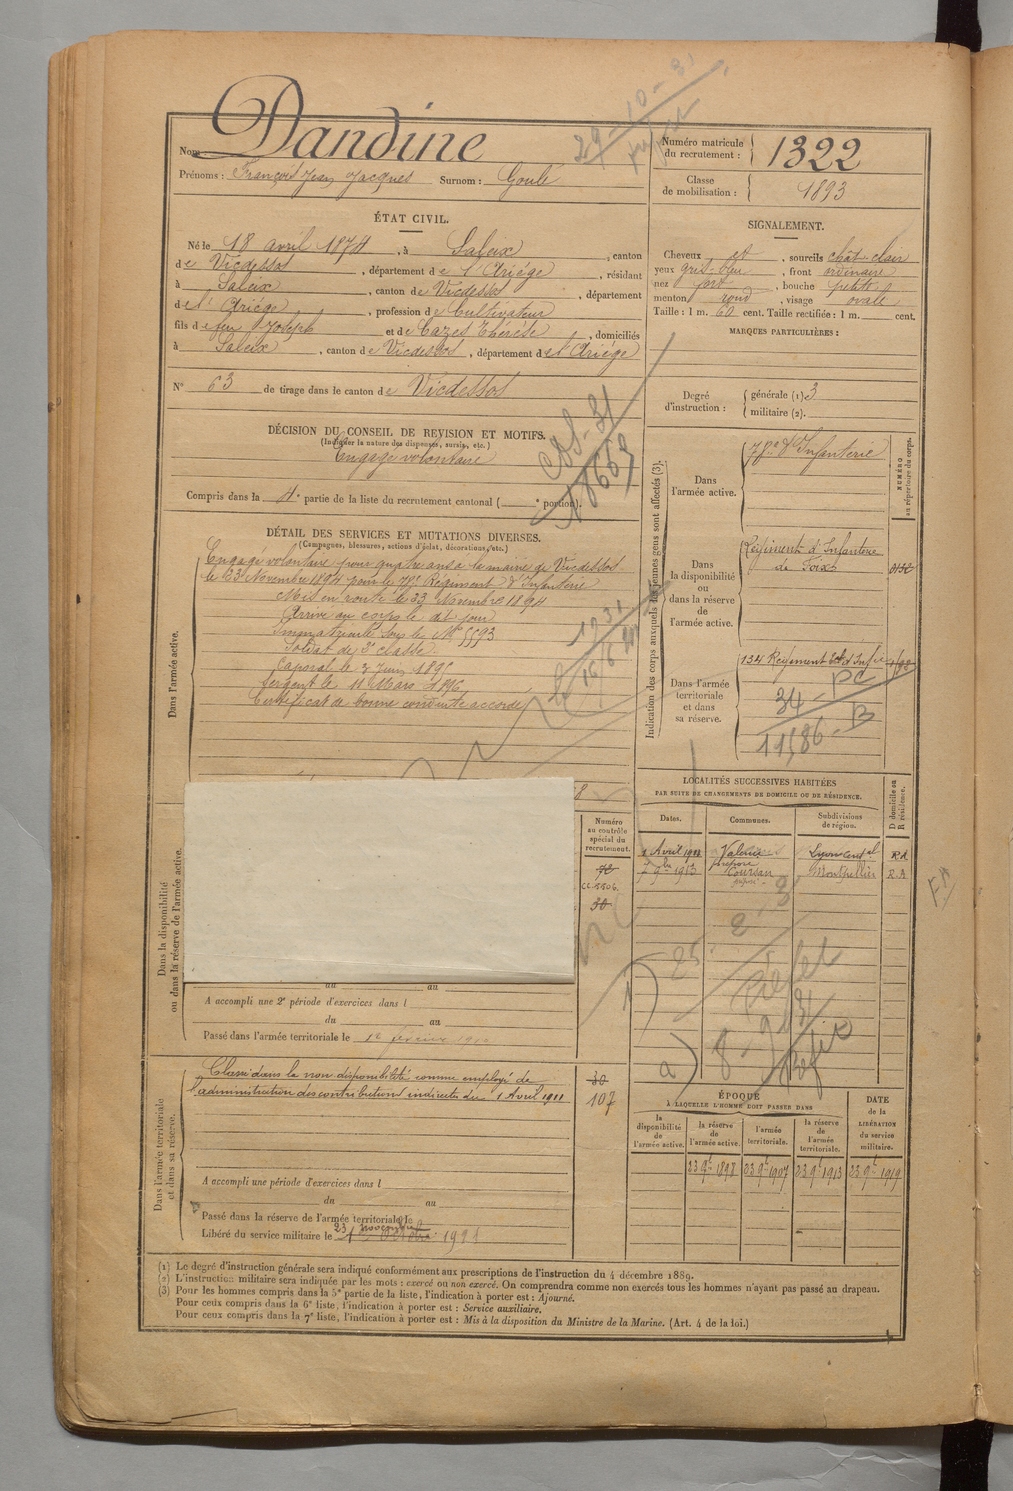 Nom Dandine
Prénoms : François Jean Jacques Surnom : Goulé
Numéro matricule du recrutement : 1322
Classe de mobilisation : 1893
29-10-31
ÉTAT CIVIL.
Né le 18 avril 1874, à Saleix, canton
de Vicdessos, département de l'Ariége, résidant
à Saleix, canton de Vicdessos, département
de l'Ariége, profession de Cultivateur
fils de feu Joseph et de Cazes Thérèse, domiciliés
à Saleix, canton de Vicdessos, département de l'Ariége
N° 63 de tirage dans le canton de Vicdessos
SIGNALEMENT.
Cheveux et, sourcils chât-clair
yeux gris-bleu, front ordinaire
nez fort, bouche petite
menton rond, visage ovale
Taille : 1 m. 60 cent. Taille rectifiée : 1 m. cent.
MARQUES PARTICULIÈRES :
Degré d'instruction : générale (1) 3
militaire (2).
DÉCISION DU CONSEIL DE REVISION ET MOTIFS.
(Indiquer la nature des dispenses, sursis, etc.)
Engagé volontaire
Compris dans la 4e partie de la liste du recrutement cantonal ( e portion).
18663
DÉTAIL DES SERVICES ET MUTATIONS DIVERSES.
(Campagnes, blessures, actions d'éclat, décorations, etc.)
Dans l'armée active.
Engagé volontaire pour quatre ans à la mairie de Vicdessos
le 23 Novembre 1894 pour le Régiment d'Infanterie
Mis en route le 23 Novembre 1894
Arrivé au corps le dit jour
Immatriculé sous le No 5593
Soldat de 2e classe
Caporal le Juin 1895
Sergent le 11 Mars 1896
Certificat de bonne conduite accordé
1931
Indication des corps auxquels les jeunes gens sont affectés (3).
Dans l'armée active.
d'Infanterie
NUMÉRO au répertoire du corps.
Dans la disponibilité ou dans la réserve de l'armée active.
Régiment d'Infanterie
de Foix
Dans l'armée territoriale et dans sa réserve.
134 Régiment
34 - PC
11586 - B
LOCALITÉS SUCCESSIVES HABITÉES
PAR SUITE DE CHANGEMENTS DE DOMICILE OU DE RÉSIDENCE.
Dates. Communes. Subdivisions de région. D domicile ou R résidence.
1 Avril 1911 Valence Lyon Cent al R d
9bre 1913 Coursan Montpellier R d
Numéro au contrôle spécial du recrutement.
30
Dans la disponibilité ou dans la réserve de l'armée active.
du au
A accompli une 2e période d'exercices dans l
du au
Passé dans l'armée territoriale le
Dans l'armée territoriale et dans sa réserve.
Classé dans la non disponibilité comme employé de
l'administration des contributions indirectes du 1 Avril 1911
30
107
A accompli une période d'exercices dans l
du au
Passé dans la réserve de l'armée territoriale le
23 novembre
Libéré du service militaire le 1er Octobre 1921
ÉPOQUE
À LAQUELLE L'HOMME DOIT PASSER DANS
la disponibilité de l'armée active. la réserve de l'armée active. l'armée territoriale. la réserve de l'armée territoriale. DATE de la LIBÉRATION du service militaire.
23 9bre 1898 23 9bre 1907 23 9bre 1913 23 9bre 1919
(1) Le degré d'instruction générale sera indiqué conformément aux prescriptions de l'instruction du 4 décembre 1889.
(2) L'instruction militaire sera indiquée par les mots : exercé ou non exercé. On comprendra comme non exercés tous les hommes n'ayant pas passé au drapeau.
(3) Pour les hommes compris dans la 5e partie de la liste, l'indication à porter est : Ajourné.
Pour ceux compris dans la 6e liste, l'indication à porter est : Service auxiliaire.
Pour ceux compris dans la 7e liste, l'indication à porter est : Mis à la disposition du Ministre de la Marine. (Art. 4 de la loi.)